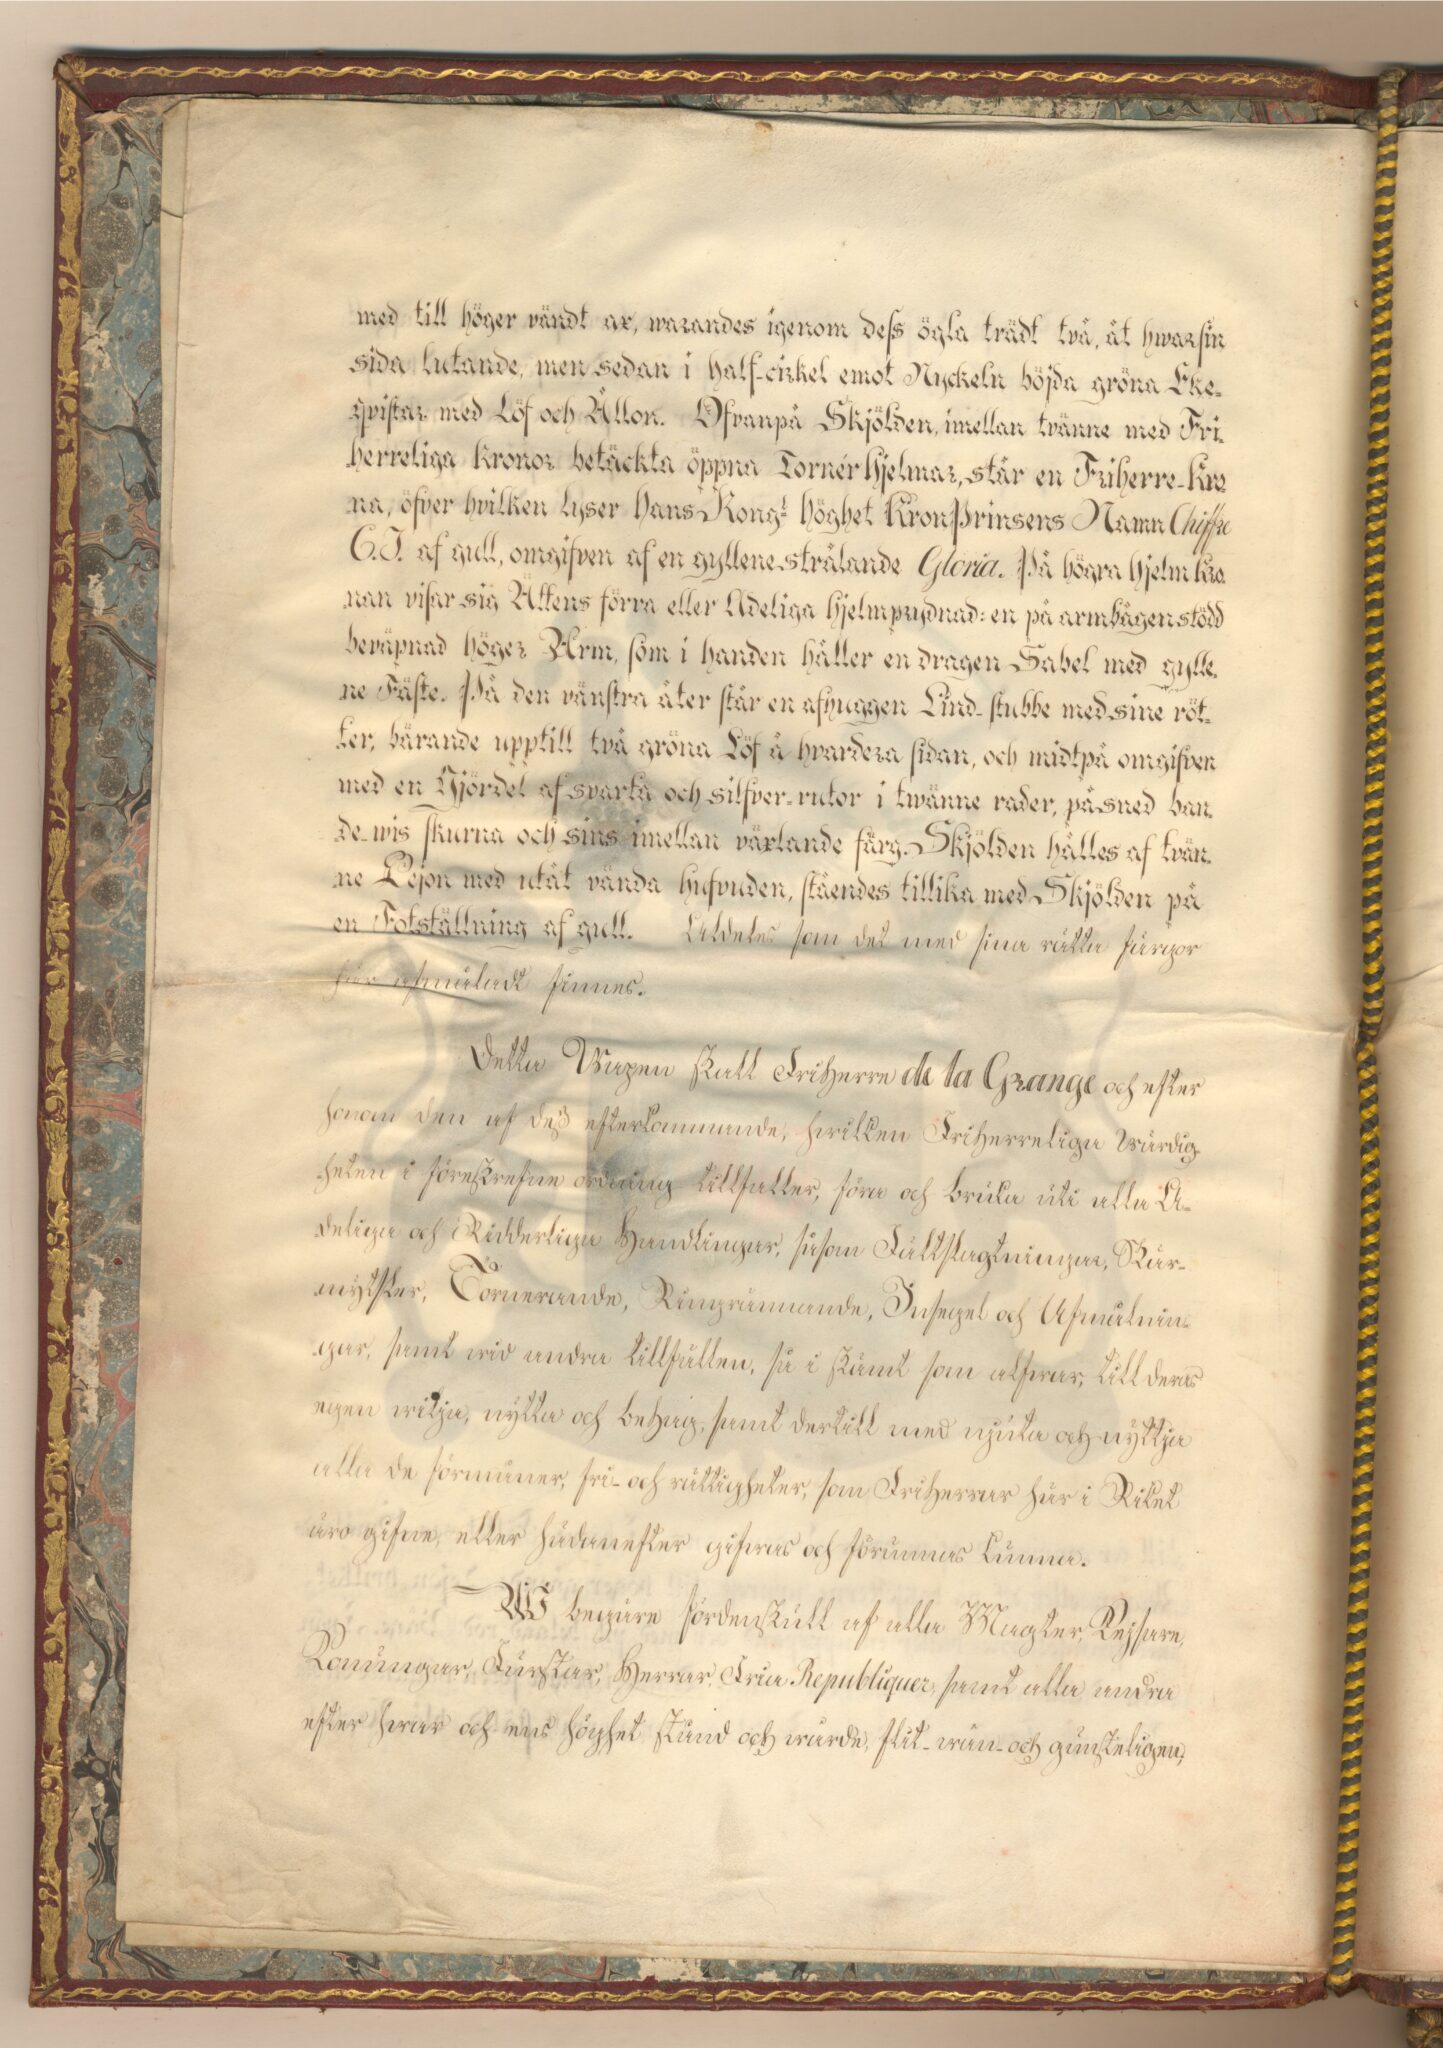 med till höger vändt ax, warandes igenom dess ögla trädt två, åt hwarsin
sida lutande, men sedan i half-cirkel emot Nyckeln böjda gröna Eke-
qvistar med Löf och Ållon. Ofvanpå Skjölden, imellan tvänne med Fri-
herreliga Kronor betäckta öppna Tornérhjelmar, står en Friherre-Kro-
na, öfver hvilken lyser Hans Kongl Höghet KronPrinsens Namn Chiffre
C.J. af gull, omgifven af en gyllene strålande Gloria. På högra hjelmkro-
nan visar sig Ättens förra eller Adeliga hjelmprydnad: en på armbågen stödd
beväpnad höger Arm, som i handen håller en dragen Sabel med gylle-
ne Fäste. På den vänstra åter står en afhuggen Lind-stubbe med sine röt-
ter, bärande upptill två gröna Löf å hvardera sidan, och midtpå omgifven
med en Gjördel af svarta och silfver-rutor i twänne rader, på sned ban-
de-wis skurna och sins imellan växlande färg. Skjölden hålles af tvän-
ne Lejon med utåt vända hufvuden, ståendes tillika med Skjölden på
en Fotställning af gull. Aldeles som det med sina rätta färgor
här afmåladt finnes.
Detta Wapen skall Friherre de la Grange och efter
honom den af deß efterkommande, hwilken Friherreliga Wärdig-
heten i föreskrefne ordning tillfaller, föra och bruka uti alla A-
deliga och Ridderliga Handlingar, såsom Fältslagtningar, Skär-
mytsler, Tornerande, Ringrännande, Insegel och Afmålnin-
gar, samt wid andra tillfällen, så i skämt som alfwar, till deras
egen wilja, nytta och behag, samt dertill med njuta och nyttja
alla de förmåner, fri- och rättigheter, som Friherrar här i Riket
äro gifne, eller hädanefter gifwas och förunnas kunna.
Wi begäre fördenskull af alla Magter, Kejsare,
Konungar, Furstar, Herrar, Fria Republiquer, samt alla andra
efter hwar och ens höghet, stånd och wärde, flit- wän- och gunsteligen,